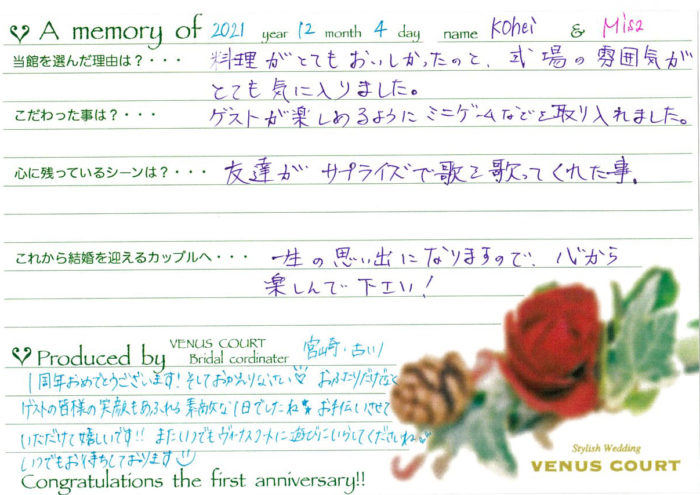 A memory of 2021 year 12 month 4 day name Kohei & Misa
当館を選んだ理由は？・・・ 料理がとてもおいしかったのと、式場の雰囲気が
とても気に入りました。
こだわった事は？・・・ ゲストが楽しめるようにミニゲームなどを取り入れました。
心に残っているシーンは？・・・ 友達がサプライズで歌を歌ってくれた事。
これから結婚を迎えるカップルへ・・・ 一生の思い出になりますので、心から
楽しんで下さい！
Produced by VENUS COURT Bridal cordinater 宮崎・古川
1周年おめでとうございます！そしておかえりなさい おふたりだけでなく
ゲストの皆様の笑顔もあふれる素敵な1日でしたね お手伝いさせて
いただけて嬉しいです!! またいつでもヴィーナスコートに遊びにいらしてくださいね
いつでもお待ちしております
Congratulations the first anniversary!!
Stylish Wedding
VENUS COURT